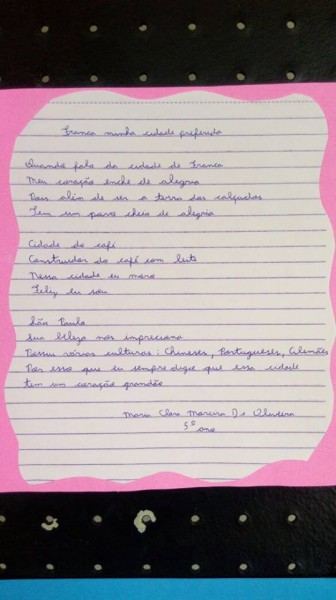 Franca minha cidade preferida
Quando falo da cidade de Franca
Meu coração enche de alegria
Pois além de ser a terra dos calçados
Tem um povo cheio de alegria
Cidade do café
Construidor do café com leite
Nessa cidade eu moro
Feliz eu sou
São Paulo
Sua beleza nos impreciona
Possui várias culturas: Chineses, Portugueses, Alemães
Por isso que eu sempre digo que essa cidade
tem um coração grandão
Maria Clara Moreira De Oliveira
5º ano